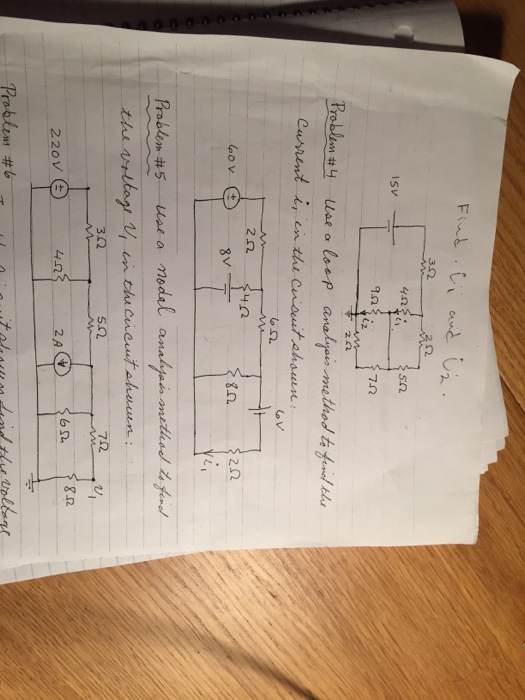 Find i1 and i2.
3Ω 2Ω
15V 4Ω i1 5Ω
9Ω i2 7Ω
2Ω
Problem #4 Use a loop analysis method to find the
current i1 in the circuit shown:
2Ω 6Ω 6V
60V 8V 4Ω 8Ω 2Ω
i1
Problem #5 Use a nodal analysis method to find
the voltage V1 in the circuit shown:
3Ω 5Ω 7Ω V1
220V 4Ω 2A 6Ω 8Ω
Problem #6
find the voltage